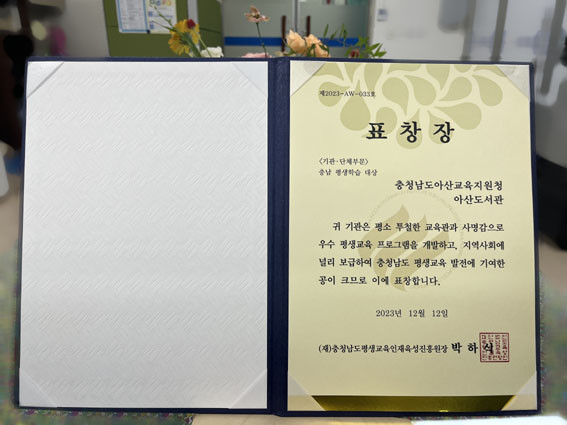 제2023-AW-033호
표 창 장
〈기관·단체부문〉
충남 평생학습 대상
충청남도아산교육지원청
아산도서관
귀 기관은 평소 투철한 교육관과 사명감으로
우수 평생교육 프로그램을 개발하고, 지역사회에
널리 보급하여 충청남도 평생교육 발전에 기여한
공이 크므로 이에 표창합니다.
2023년 12월 12일
(재)충청남도평생교육인재육성진흥원장 박 하 식